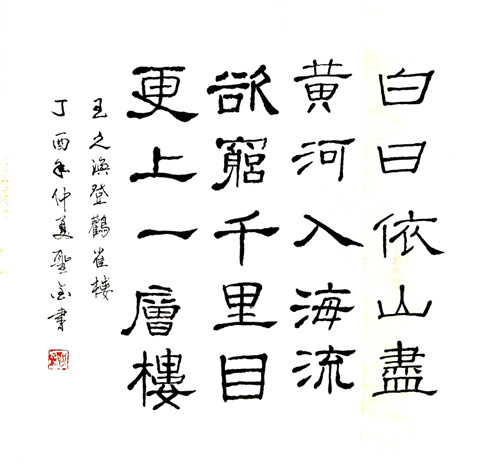 白日依山盡
黄河入海流
欲窮千里目
更上一層樓
王之渙登鸛雀樓
丁酉年仲夏聖金書